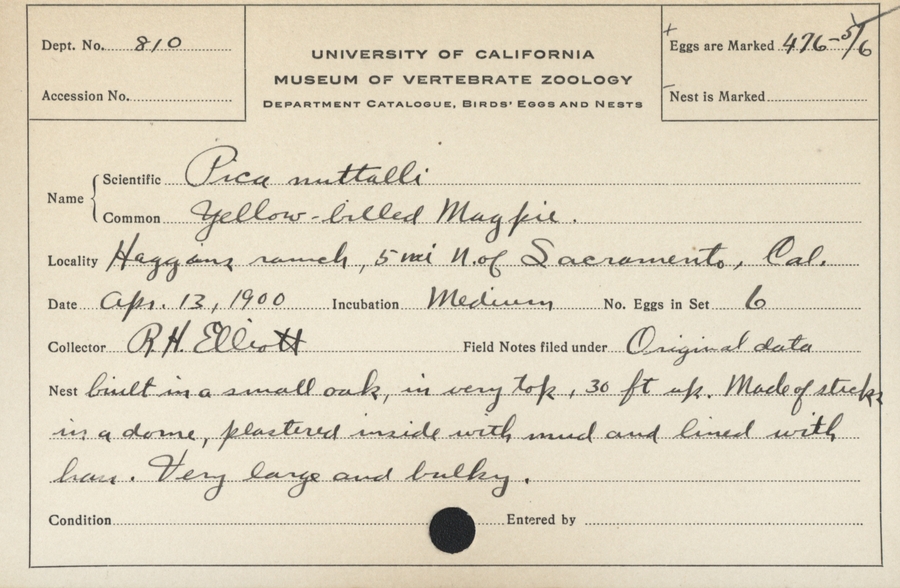 Dept. No. 810
Accession No.
UNIVERSITY OF CALIFORNIA
MUSEUM OF VERTEBRATE ZOOLOGY
DEPARTMENT CATALOGUE, BIRDS' EGGS AND NESTS
+ Eggs are Marked 476-5/6
- Nest is Marked
Name
Scientific Pica nuttalli
Common Yellow-billed Magpie.
Locality Haggins ranch, 5 mi N. of Sacramento, Cal.
Date Apr. 13, 1900 Incubation Medium No. Eggs in Set 6
Collector R.H. Elliott Field Notes filed under Original data
Nest built in a small oak, in very top, 30 ft up. Made of sticks
in a dome, plastered inside with mud and lined with
hair. Very large and bulky.
Condition Entered by